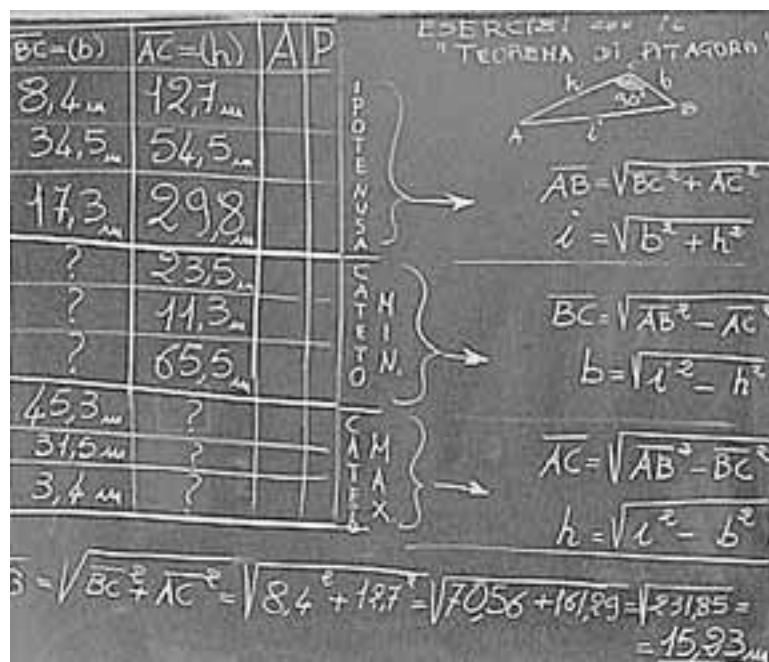 ESERCIZI con il
"TEOREMA DI PITAGORA"
h b
90°
A i B
BC=(b) AC=(h) A P
8,4m 12,7m
34,5m 54,5m
17,3m 29,8m
? 23,5m
? 11,3m
? 65,5m
45,3m ?
31,5m ?
3,4m ?
IPOTENUSA
CATETO MIN.
CATETO MAX
AB=√BC²+AC²
i=√b²+h²
BC=√AB²-AC²
b=√i²-h²
AC=√AB²-BC²
h=√i²-b²
B=√BC²+AC²=√8,4²+12,7²=√70,56+161,29=√231,85=
=15,23m